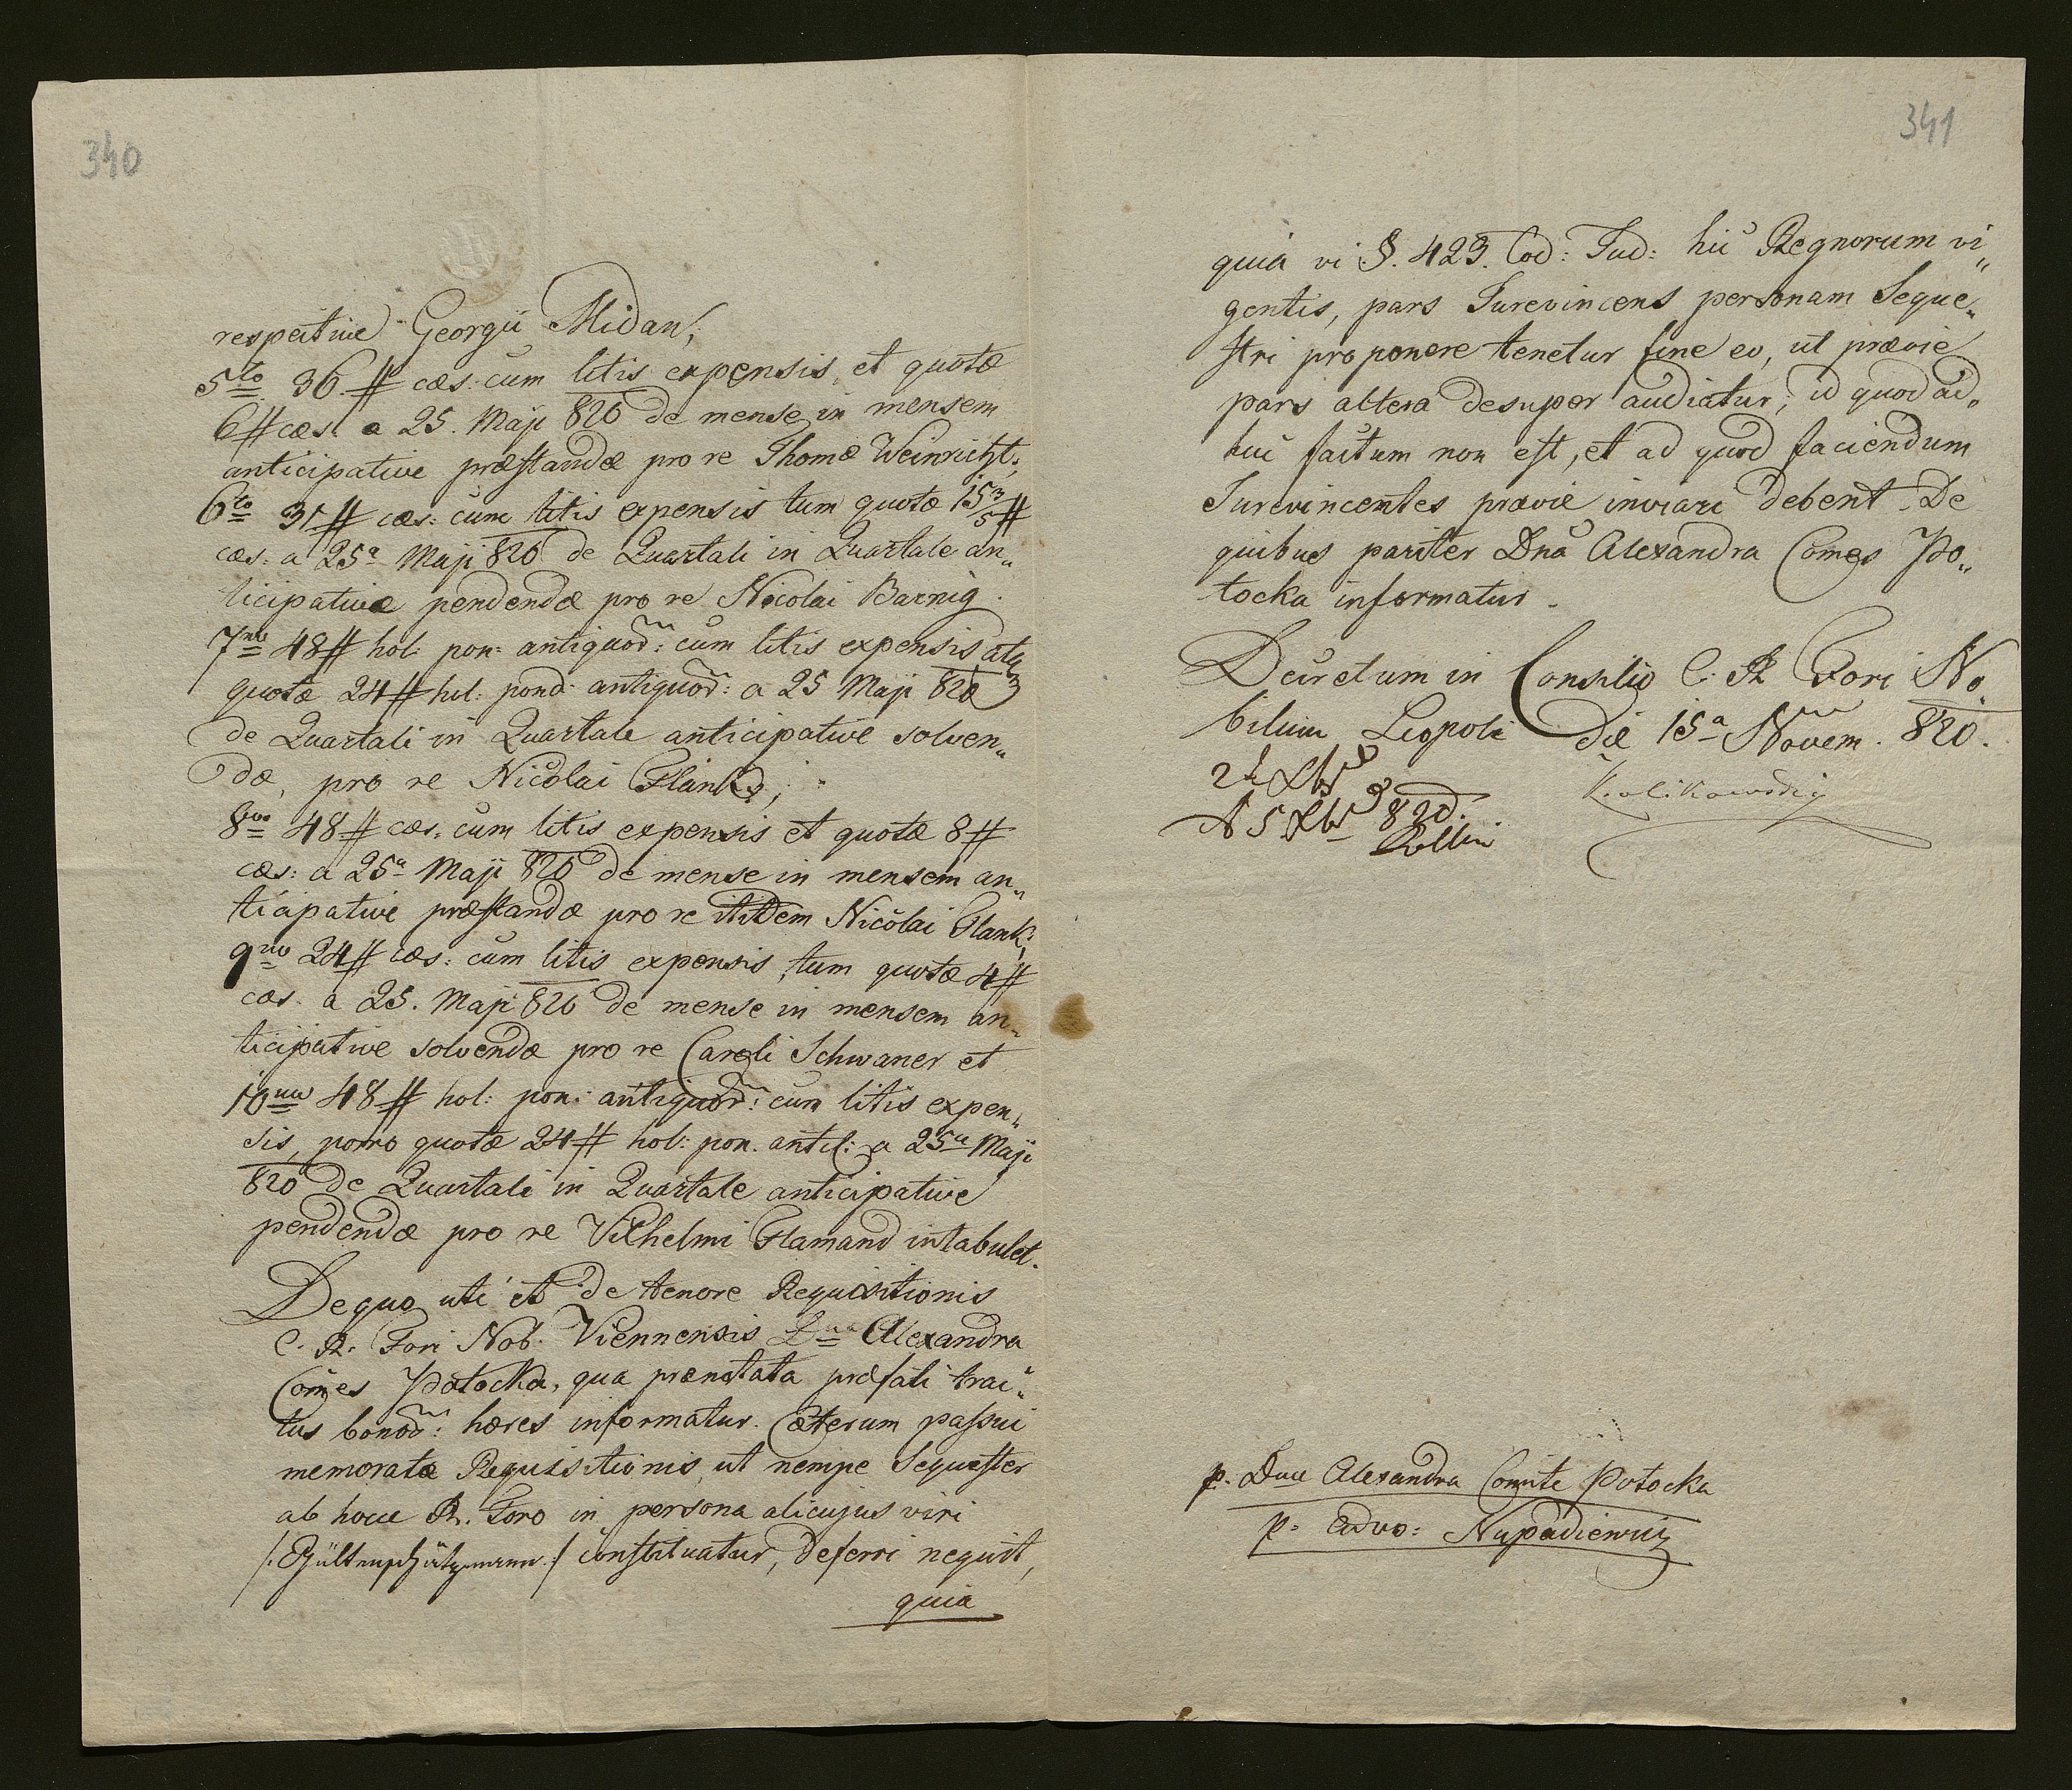 340
respective Georgii Midan,
5to 36 # cæs: cum litis expensis, et quotæ
6 # cæs. a 25. Maji 820 de mense in mensem
anticipative præstandæ pro re Thomæ Weinricht,
6to 31 # cæs: cum litis expensis tum quotæ 15 3/5 #
cæs: a 25a Maji 820 de Quartali in Quartale an„
ticipative pendendæ pro re Nicolai Barnig.
7mo 48 # hol: pon: antiquor: cum litis expensis atq
quotæ 24 # hol: pond: antiquor: a 25 Maji 820
de Quartali in Quartale anticipative solven„
dæ, pro re Nicolai Flank,
8vo 48 # cæs: cum litis expensis et quotæ 8 #
cæs: a 25a Maji 820 de mense in mensem an„
ticipative præstandæ pro re itidem Nicolai Flank,
9no 24 # cæs: cum litis expensis, tum quotæ 4 #
cæs. a 25. Maji 820 de mense in mensem an„
ticipative solvendæ pro re Caroli Schwaner et
10mo 48 # hol: pon: antiquor: cum litis expen„
sis, porro quotæ 24 # hol: pon. a 25a Maji
820 de Quartali in Quartale anticipative
pendendæ pro re Vilhelmi Flamand intabulet.
Dequo uti et de tenore Requisitionis
C. R. Fori Nob. Viennensis Dna Alexandra
Comes Potocka, qua prænotata præfati trac„
tus bonor: hæres informatur. Cæterum passui
memoratæ Requisitionis, ut nempe Sequester
ab hocce R. Foro in persona alicujus viri
constituatur, deferri nequit,
quia
341
quia vi §. 423. Cod: Jud: hic Regnorum vi„
gentis, pars Jurevincens personam Seque„
stri proponere tenetur fine eo, ut prævie
pars altera desuper audiatur, id quod ad„
huc factum non est, et ad quod faciendum
Jurevincentes prævie inviari debent. De
quibus pariter Dna Alexandra Comes Po„
tocka informatur.
Decretum in Consilio C. R. Fori No„
bilium Leopoli die 15a Novem. 820.
5 Xbr 820.
p. Dnae Alexandra Comite Potocka
p. Advo: